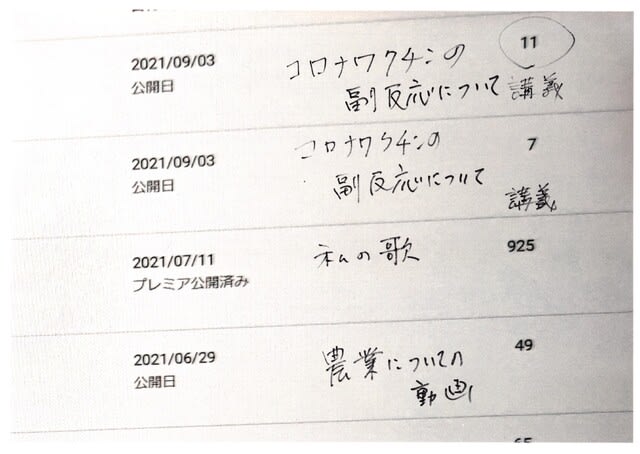 2021/09/03
公開日
コロナワクチンの
副反応について
11
講義
2021/09/03
公開日
コロナワクチンの
副反応について
7
講義
2021/07/11
プレミア公開済み
私の歌
925
2021/06/29
公開日
農業についての
動画
49